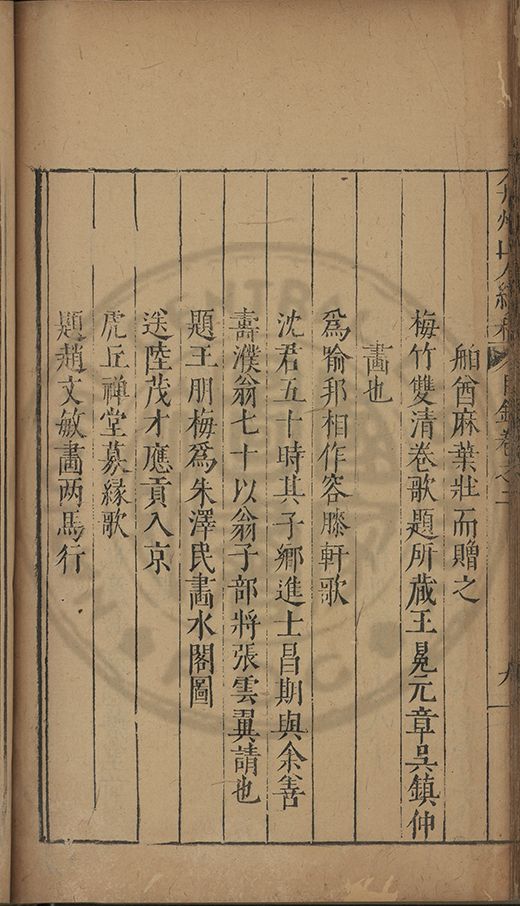 弇州山人續稿 目錄卷之二 九
舶酋麻葉壯而贈之
梅竹雙清卷歌題所蔵王冕元章吳鎮仲
畵也
爲喻邦相作容膝軒歌
沈君五十時其子鄉進士昌期與余善
壽濮翁七十以翁子部將張雲翼請也
題王朋梅爲朱澤民畵水閣圖
送陸茂才應貢入京
虎丘禪堂募緣歌
題趙文敏畵两馬行